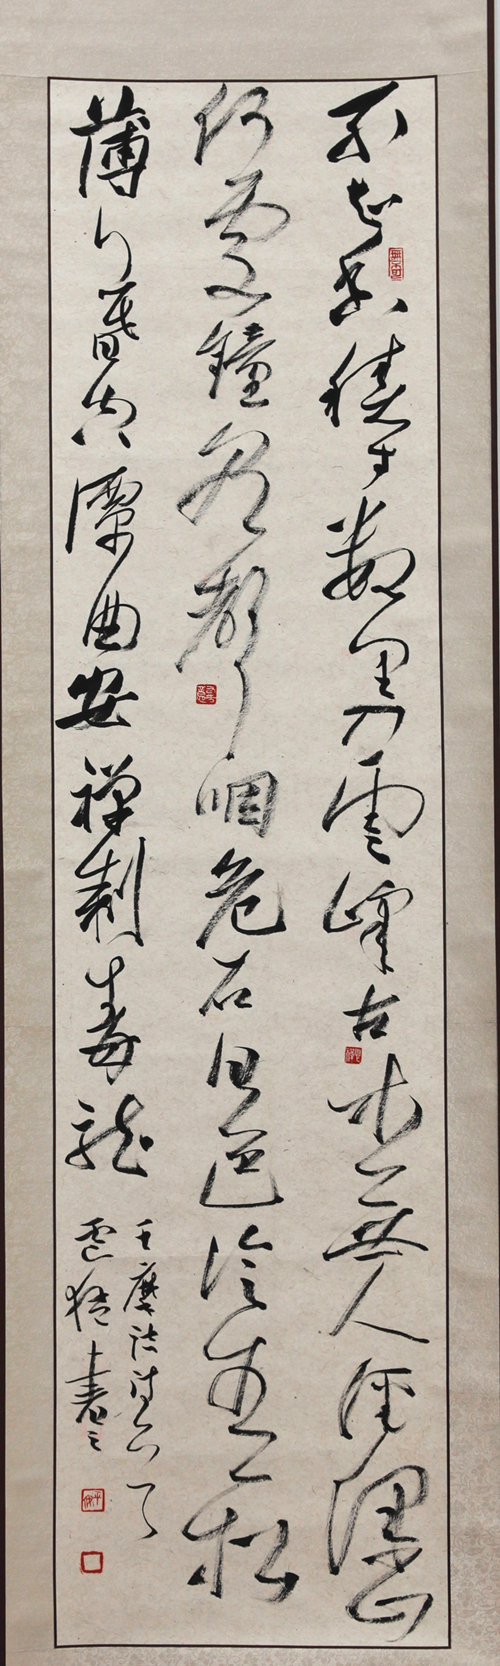 不知香積寺數里入雲峰古木無人徑深山
何處鐘泉聲咽危石日色冷青松
薄暮空潭曲安禅制毒龍
王摩詰詩
書